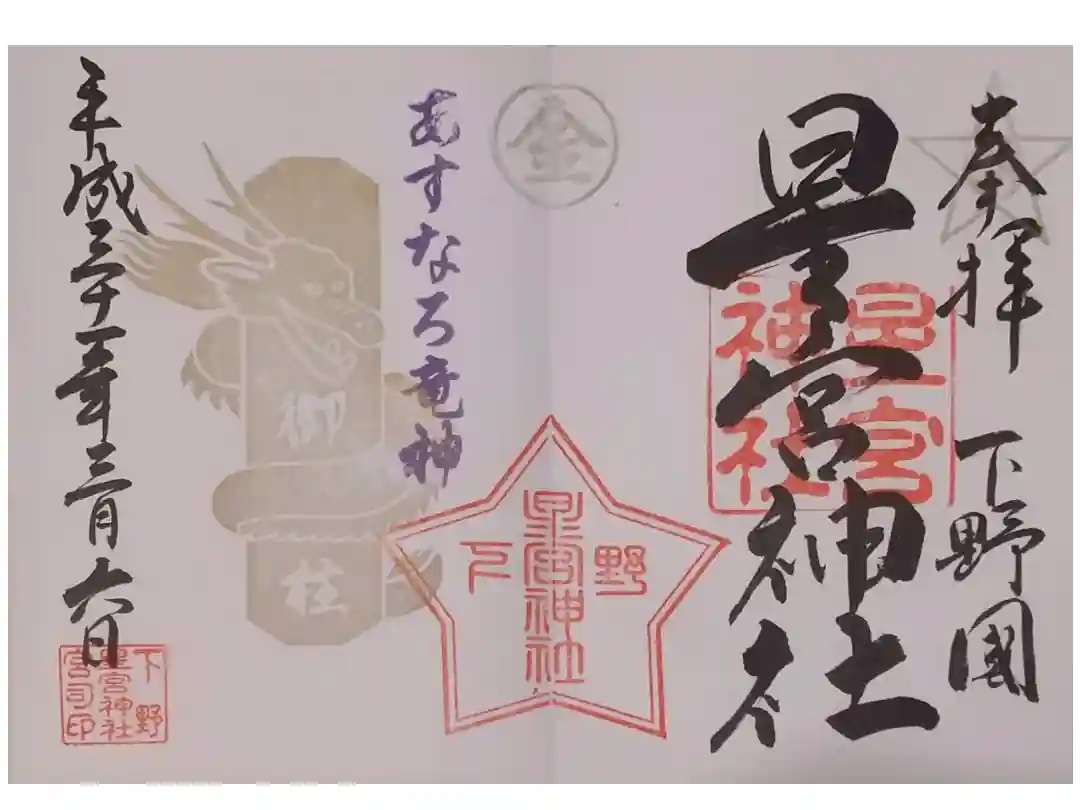 奉拝 下野國
星宮神社
星宮
神社
金
あすなろ竜神
下野
星宮神社
御柱
平成三十一年三月六日
下野
星宮神社
宮司印